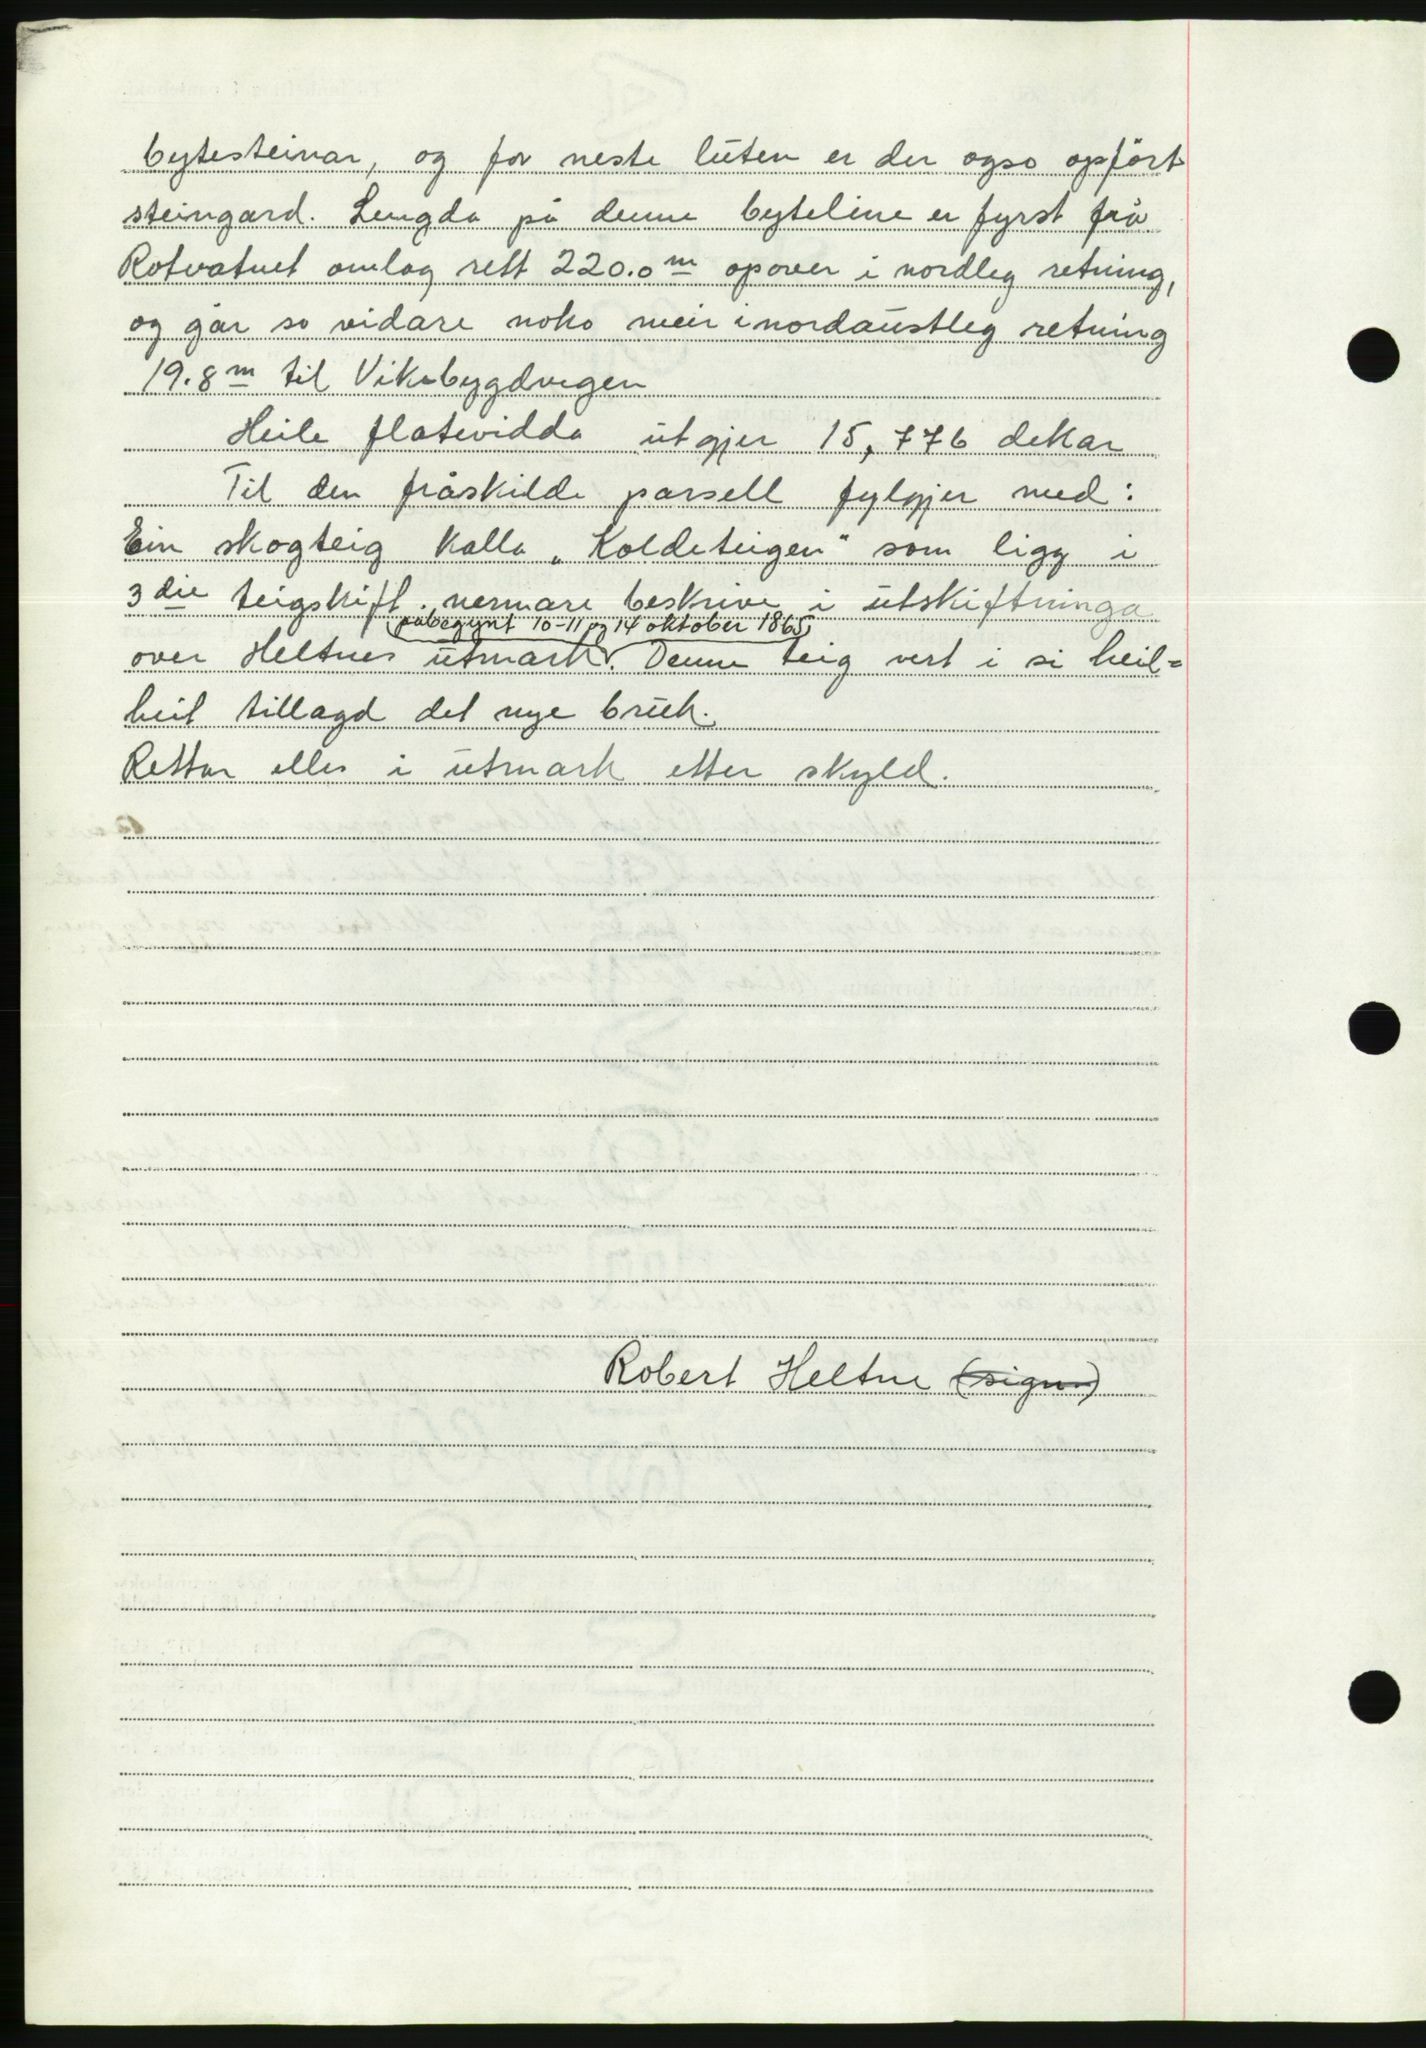 bytesteinar, og for neste luten er der ogso opfört
steingard. Lengda på denne byteline er fyrst frå
Rotvatnet omlag rett 220.0 m opover i nordleg retning,
og går so vidare noko meir i nordaustleg retning
19.8 m til Vikebygdvegen
Heile flatevidda utgjer 15,776 dekar
Til den fråskilde parsell fylgjer med:
Ein skogteig kalla „Koldeteigen" som ligg i
3 die teigskift. nermare beskrive i utskiftninga
påbegynt 10-11 og 14 oktober 1865
over Heltnes utmark. Denne teig vert i si heil-
heit tillagd det nye bruk.
Rettar elles i utmark etter skyld.
Robert Heltne (sign)